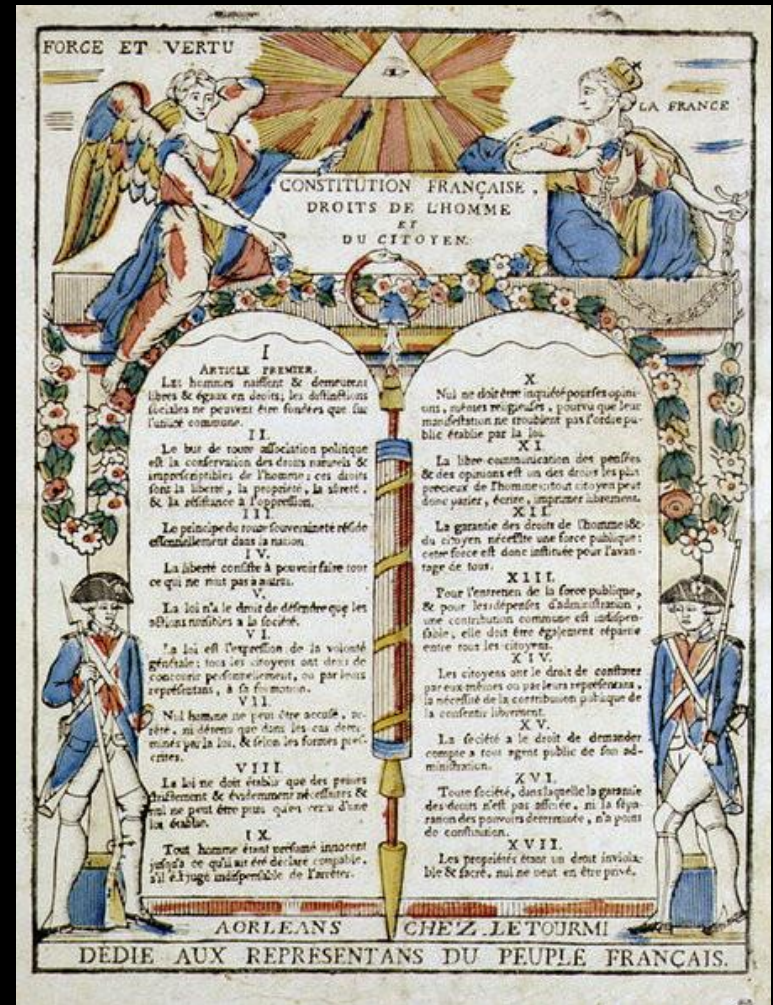 FORCE ET VERTU
LA FRANCE
CONSTITUTION FRANÇAISE,
DROITS DE L'HOMME
ET
DU CITOYEN.
I
ARTICLE PREMIER.
Les hommes naissent & demeurent
libres & égaux en droits; les distinctions
sociales ne peuvent être fondées que sur
l'utilité commune.
II.
Le but de toute association politique
est la conservation des droits naturels &
imprescriptibles de l'homme; ces droits
sont la liberté, la propriété, la sûreté,
& la résistance à l'oppression.
III.
Le principe de toute souveraineté réside
essentiellement dans la nation.
IV.
La liberté consiste à pouvoir faire tout
ce qui ne nuit pas à autrui.
V.
La loi n'a le droit de défendre que les
actions nuisibles à la société.
VI.
La loi est l'expression de la volonté
générale; tous les citoyens ont droit de
concourir personnellement, ou par leurs
représentans, à sa formation.
VII.
Nul homme ne peut être accusé, ar-
rêté, ni détenu que dans les cas déter-
minés par la loi, & selon les formes pres-
crites.
VIII.
La loi ne doit établir que des peines
strictement & évidemment nécessaires &
nul ne peut être puni qu'en vertu d'une
loi établie.
IX.
Tout homme étant présumé innocent
jusqu'à ce qu'il ait été déclaré coupable,
s'il est jugé indispensable de l'arrêter.
X.
Nul ne doit être inquiété pour ses opini-
ons, mêmes religieuses, pourvu que leur
manifestation ne troublent pas l'ordre pu-
blic établie par la loi.
XI.
La libre communication des pensées
& des opinions est un des droits les plus
precieux de l'homme: tout citoyen peut
donc parler, écrire, imprimer librement.
XII.
La garantie des droits de l'homme &
du citoyen nécessite une force publique:
cette force est donc instituée pour l'avan-
tage de tous.
XIII.
Pour l'entretien de la force publique,
& pour les dépenses d'administration,
une contribution commune est indispen-
sable, elle doit être également répartie
entre tous les citoyens.
XIV.
Les citoyens ont le droit de constater
par eux-mêmes ou par leurs représentans,
la nécessité de la contribution publique de
la consentir librement.
XV.
La société a le droit de demander
compte a tout agent public de son ad-
ministration.
XVI.
Toute société, dans laquelle la garantie
des droits n'est pas assurée, ni la sépa-
ration des pouvoirs déterminée, n'a point
de constitution.
XVII.
Les propriétés étant un droit inviola-
ble & sacré, nul ne peut en être privé.
A ORLEANS CHEZ LETOURMI
DÉDIÉ AUX REPRESENTANS DU PEUPLE FRANÇAIS.